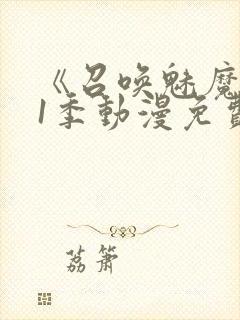 《召唤魅魔
1季動漫免費
荔箫